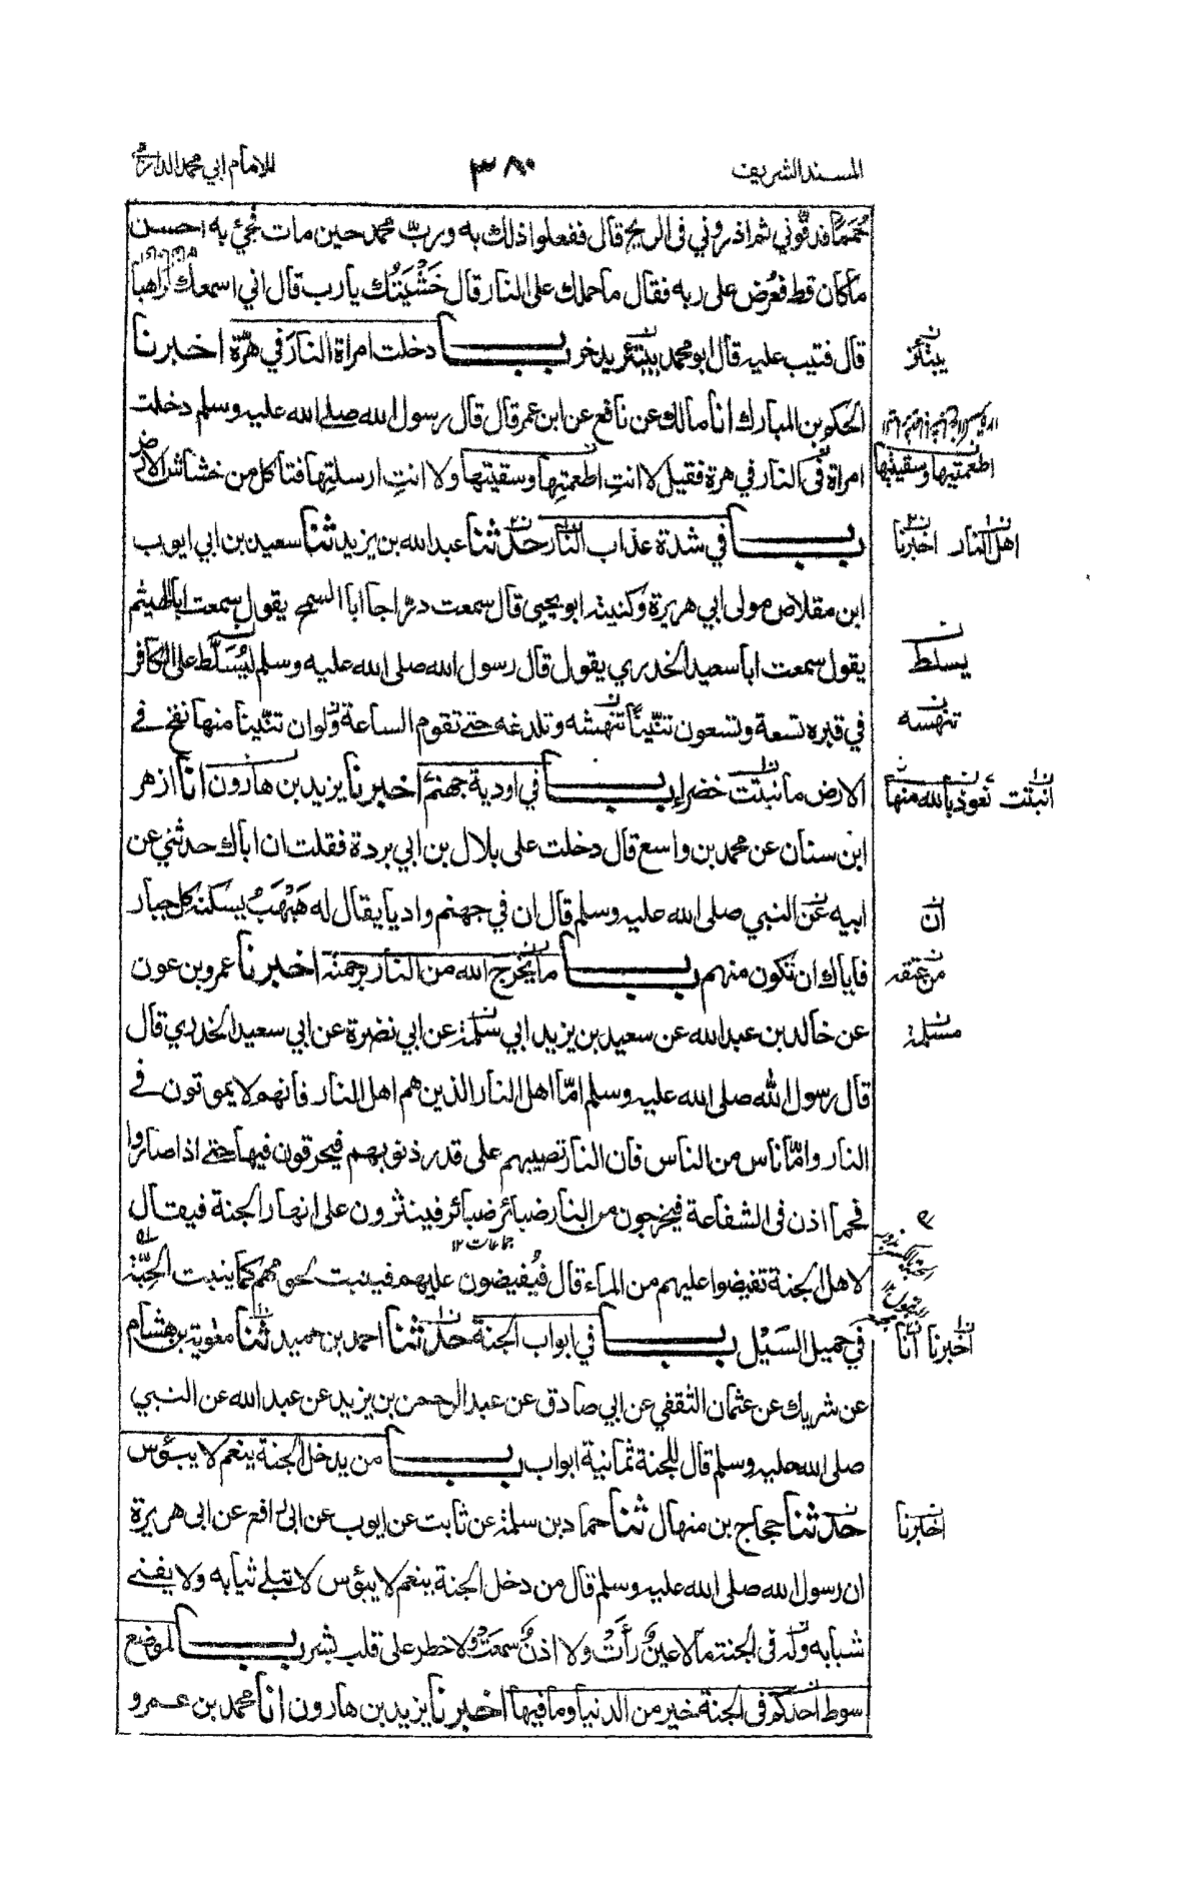 المسند الشريف
٣٨٠
للامام ابي محمد الدارمي
حُمَمًا فدقّوني ثم اذروني فى الريح قال ففعلوا ذلك به وربّ محمد حين مات فجئ به احسن
ما كان قط فعُرض على ربه فقال ما حملك على النار قال خَشْيَتُك يا رب قال اني اسمعك لراهبا
قال فتيب عليه قال ابو محمد يبتئر يدخر باب دخلت امراة النار في هرّة اخبرنا
الحكم بن المبارك انا مالك عن نافع عن ابن عمر قال قال رسول الله صلى الله عليه وسلم دخلت
امراة في النار في هرة فقيل لا انتِ اطعمتِها وسقيتِها ولا انتِ ارسلتِها فتأكل من خشاش الارض
باب في شدة عذاب النار حدثنا عبد الله بن يزيد ثنا سعيد بن ابي ايوب
ابن مقلاص مولى ابي هريرة وكنيته ابو يحيى قال سمعت دراجا ابا السمح يقول سمعت ابا الهيثم
يقول سمعت ابا سعيد الخدري يقول قال رسول الله صلى الله عليه وسلم ليُسَلَّط على الكافر
في قبره تسعة وتسعون تنّينًا تنهشه وتلدغه حتى تقوم الساعة ولو ان تنّينا منها نفخ في
الارض ما نبتت خضراء باب في اودية جهنم اخبرنا يزيد بن هارون انا ازهر
ابن سنان عن محمد بن واسع قال دخلت على بلال بن ابي بردة فقلت ان اباك حدثني عن
ابيه عن النبي صلى الله عليه وسلم قال ان في جهنم واديا يقال له هَبْهَبُ يسكنه كل جبار
فاياك ان تكون منهم باب ما يخرج الله من النار برحمته اخبرنا عمرو بن عون
عن خالد بن عبد الله عن سعيد بن يزيد ابي سلمة عن ابي نضرة عن ابي سعيد الخدري قال
قال رسول الله صلى الله عليه وسلم امّا اهل النار الذين هم اهل النار فانهم لا يموتون في
النار وامّا ناس من الناس فان النار تصيبهم على قدر ذنوبهم فيحرقون فيها حتى اذا صاروا
فحما اذن فى الشفاعة فيخرجون من النار ضبائر ضبائر فينثرون على انهار الجنة فيقال
جماعات ١٢
لاهل الجنة تفيضوا عليهم من الماء قال فيُفيضون عليهم فينبت لحومهم كما ينبت الحِبّة
في حميل السَيْل باب في ابواب الجنة حدثنا احمد بن حميد ثنا معوية بن هشام
عن شريك عن عثمان الثقفي عن ابي صادق عن عبد الرحمن بن يزيد عن عبد الله عن النبي
صلى الله عليه وسلم قال للجنة ثمانية ابواب باب من يدخل الجنة ينعم لا يبؤس
حدثنا حجاج بن منهال ثنا حماد بن سلمة عن ثابت عن ايوب عن ابي رافع عن ابى هريرة
ان رسول الله صلى الله عليه وسلم قال من دخل الجنة ينعم لا يبؤس لا تبلى ثيابه ولا يفنى
شبابه وله فى الجنة ما لا عينٌ رأت ولا اذنٌ سمعت ولا خطر على قلب بشر باب لموضع
سوط احدكم فى الجنة خير من الدنيا وما فيها اخبرنا يزيد بن هارون انا محمد بن عمرو
يبتئر
اطعمتيها وسقيتيها
اهل النار اخبرنا
يسلط
تنهسه
انبتت نعوذ بالله منها
ان
من عتقه
مسلمة
اخبرنا انا
اخبرنا